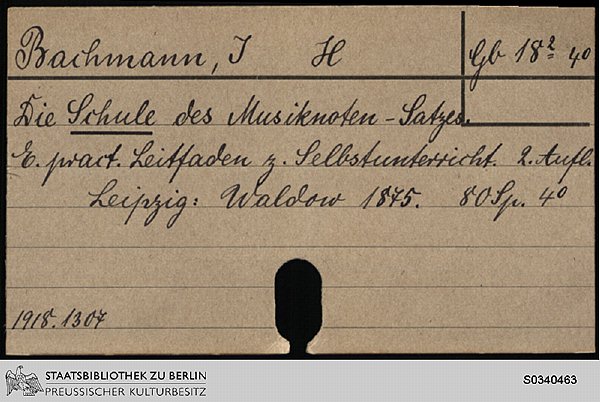 Bachmann, J H Gb 18² 4°
Die Schule des Musiknoten-Satzes.
E. pract. Leitfaden z. Selbstunterricht. 2. Aufl.
Leipzig: Waldow 1875. 80 Sp. 4°
1918.1307
STAATSBIBLIOTHEK ZU BERLIN
PREUSSISCHER KULTURBESITZ
S0340463